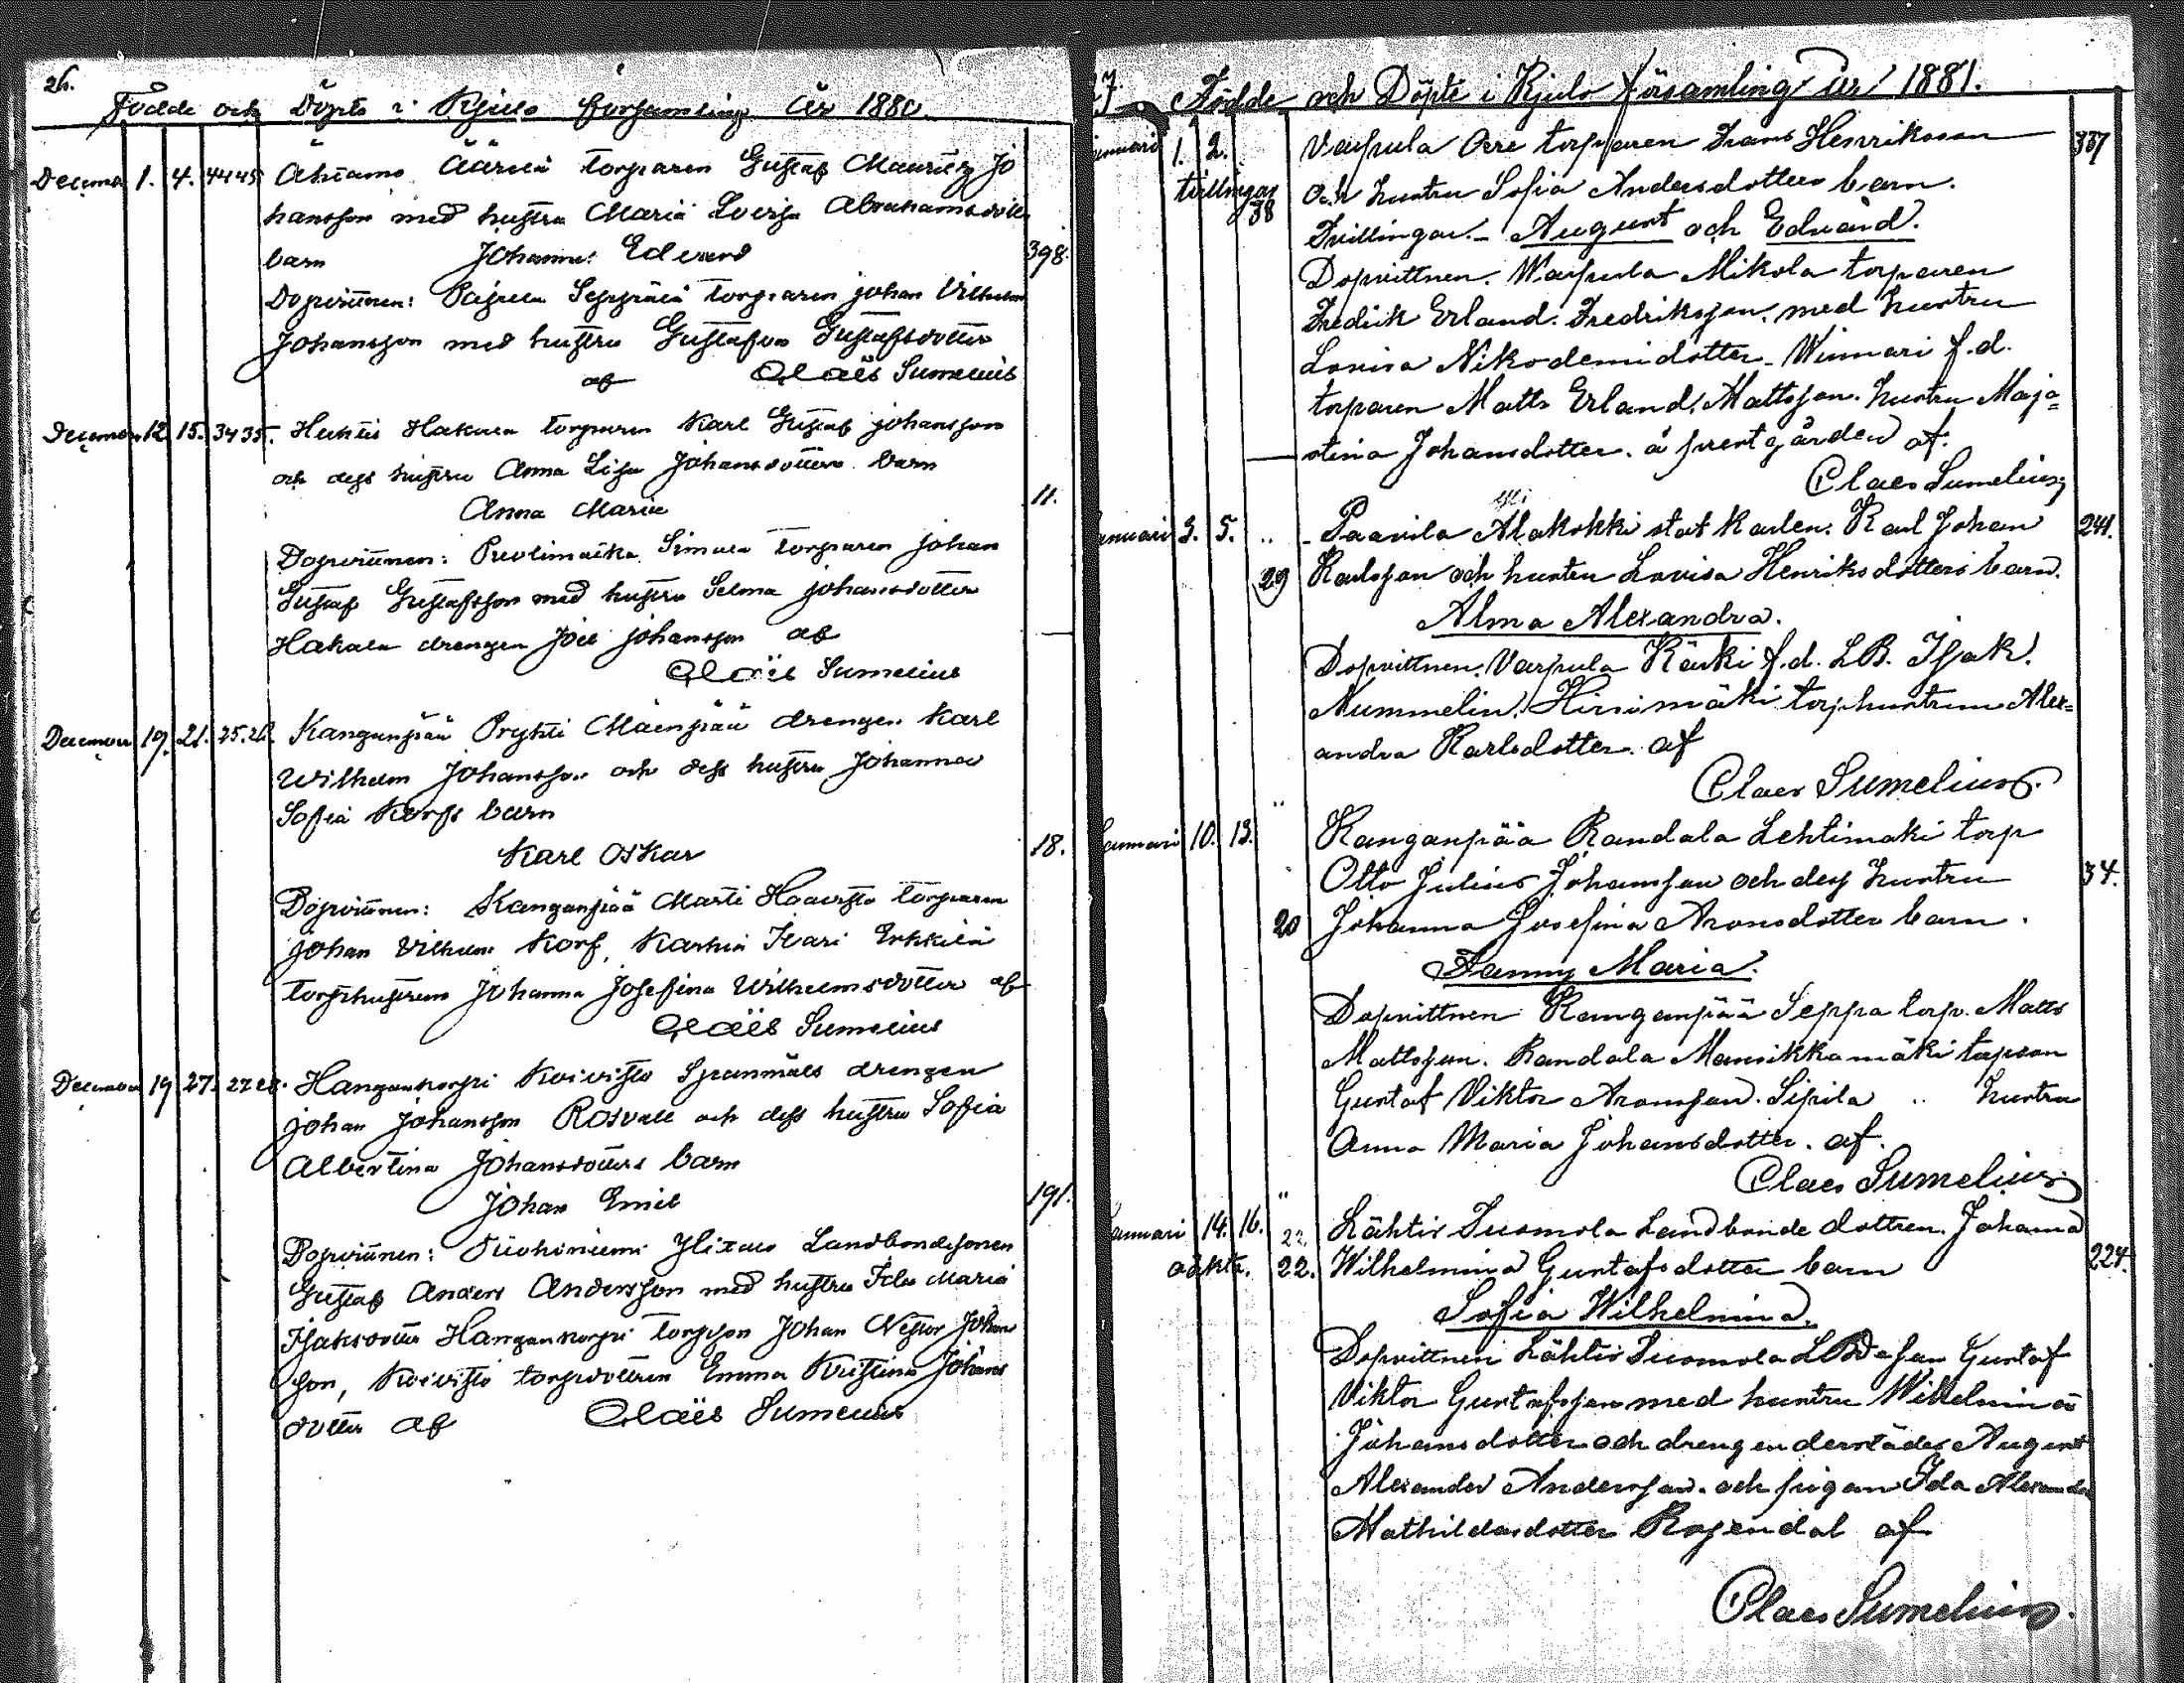 26.
Födde och Döpte i Kjulo församling År 1880.
December 1. 4. 44 45 torparen Gustaf Mauritz Jo
hansson med hustru Maria Lovisa Abrahamsdotters
barn Johannes Edvard 398.
Dopvittnen: Seppälä torparen Johan Vilhelm
Johansson med hustru Gustafva Gustafsdotter
af Claës Sumelius
December 12. 15. 34 35. Hakala torparen Karl Gustaf Johansson
och dess hustru Anna Lisa Johansdotters barn
Anna Maria 11.
Dopvittnen: Simula torparen Johan
Gustaf Gustafsson med hustru Selma Johansdotter
Hakala drengen Joel Johansson af
Claës Sumelius
December 19. 21. 25. 26. Kanganpää Prykti Mäenpää drengen Karl
Wilhelm Johansson och dess hustru Johanna
Sofia Korfs barn
Karl Oskar 18.
Dopvittnen: Kanganpää Martti Haavisto torparen
Johan Vilhelm Korf, Karhia Ilari Erkkilä
torphustrun Johanna Josefina Wilhelmsdotter af
Claës Sumelius
December 19. 27. 27 28. Hangankorpi Koivisto Spannmåls drengen
Johan Johansson Rosvall och dess hustru Sofia
Albertina Johansdotters barn
Johan Emil 191.
Dopvittnen: Landbondesonen
Gustaf Anders Andersson med hustru Ida Maria
Isaksdotter Hangankorpi torpson Johan Nestor Johans
son, Koivisto torpdottren Emma Kristina Johans
dotter af Claës Sumelius
27. Födde och Döpte i Kjulo församling år 1881.
Januari 1. 2. Varpula Orre torparen Frans Henriksson 337
tvillingar och hustru Sofia Andersdotters barn.
38 Tvillingar. - August och Edvard.
Dopvittnen. Warpula Mikola torparen
Fredrik Erland. Fredriksson. med hustru
Lovisa Nikodemidotter - Winnari f.d.
torparen Matts Erland. Mattsson. hustru Maja=
stina Johansdotter. å prestgården af.
Claes Sumelius
Januari 3. 5. " - Paavila Alakokki stat karlen. Karl Johan 241.
29 Karlsson och hustru Lovisa Henriksdotters barn.
Alma Alexandra.
Dopvittnen. Varpula Kärki f.d. LB. Isak.
Nummelin. Hirsimäki torphustrun Alex=
andra Karlsdotter. af
Claes Sumelius.
Januari 10. 13. " Kanganpää Randala Lehtimäki torp
Otto Julius Johansson och dess hustru 34.
20 Johanna Josefina Aronsdotter barn.
Fanny Maria.
Dopvittnen Kanganpää Seppa torp. Matts
Mattsson. Randala Mansikkamäki torpson
Gustaf Viktor Aronsson. Sipila " hustru
Anna Maria Johansdotter. af.
Claes Sumelius
Januari 14. 16. " 22. Lähtis Tuomola Landbonde dottren. Johanna
oäkta. 22. Wilhelmina Gustafsdotter barn 224.
Sofia Wilhelmina.
Dopvittnen Lähtis Tuomola LBdeson Gustaf
Viktor Gustafsson med hustru Wilhelmina
Johansdotter och drengen derstädes August
Alexander Andersson. och pigan Ida Alexandra
Mathildasdotter Rosendal af
Claes Sumelius.